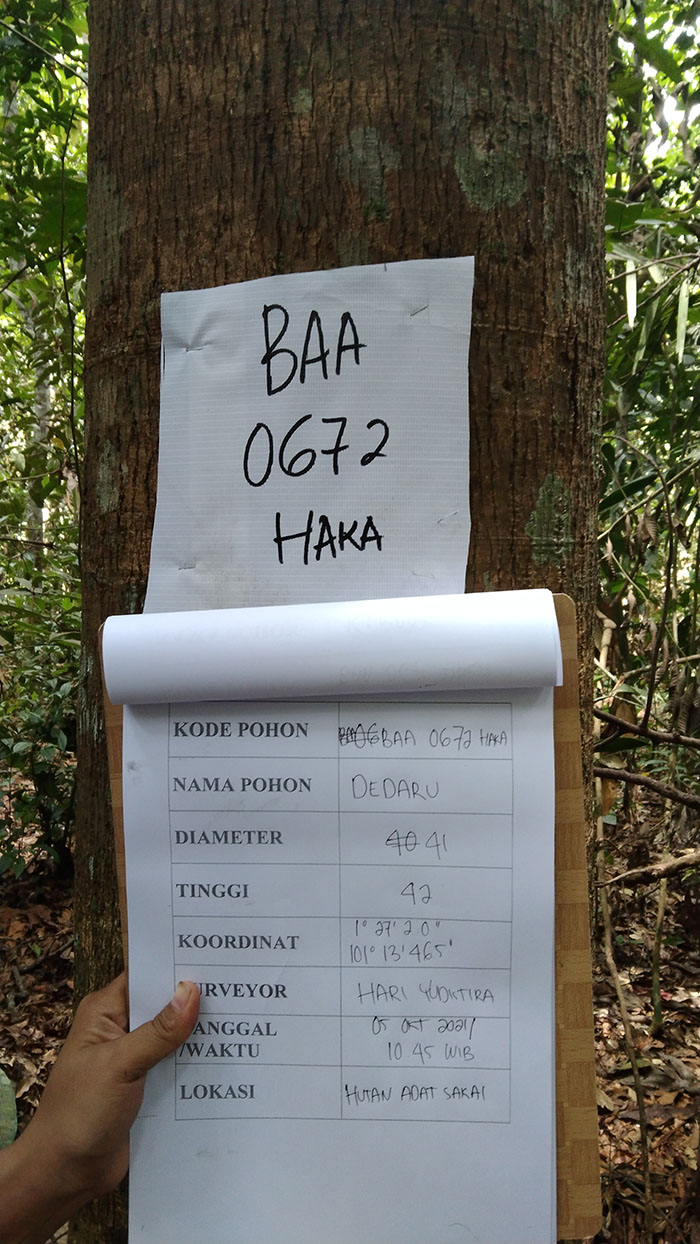 BAA
0672
HAKA
KODE POHON BAA 0672 HAKA
NAMA POHON DEDARU
DIAMETER 40 41
TINGGI 42
KOORDINAT 1° 27' 20"
101° 13' 465'
URVEYOR HARI YUDKTIRA
ANGGAL 05 OKT 2021/
/WAKTU 10.45 WIB
LOKASI HUTAN ADAT SAKAI